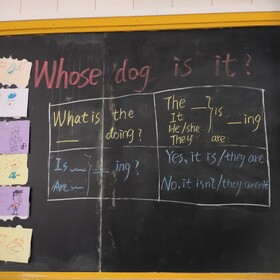 Whose dog is it?
What is the
___ doing?
The __
It
He/she
They
is
are
__ing
Is __
Are __
__ing?
Yes, it is/they are
No, it isn't/they aren't